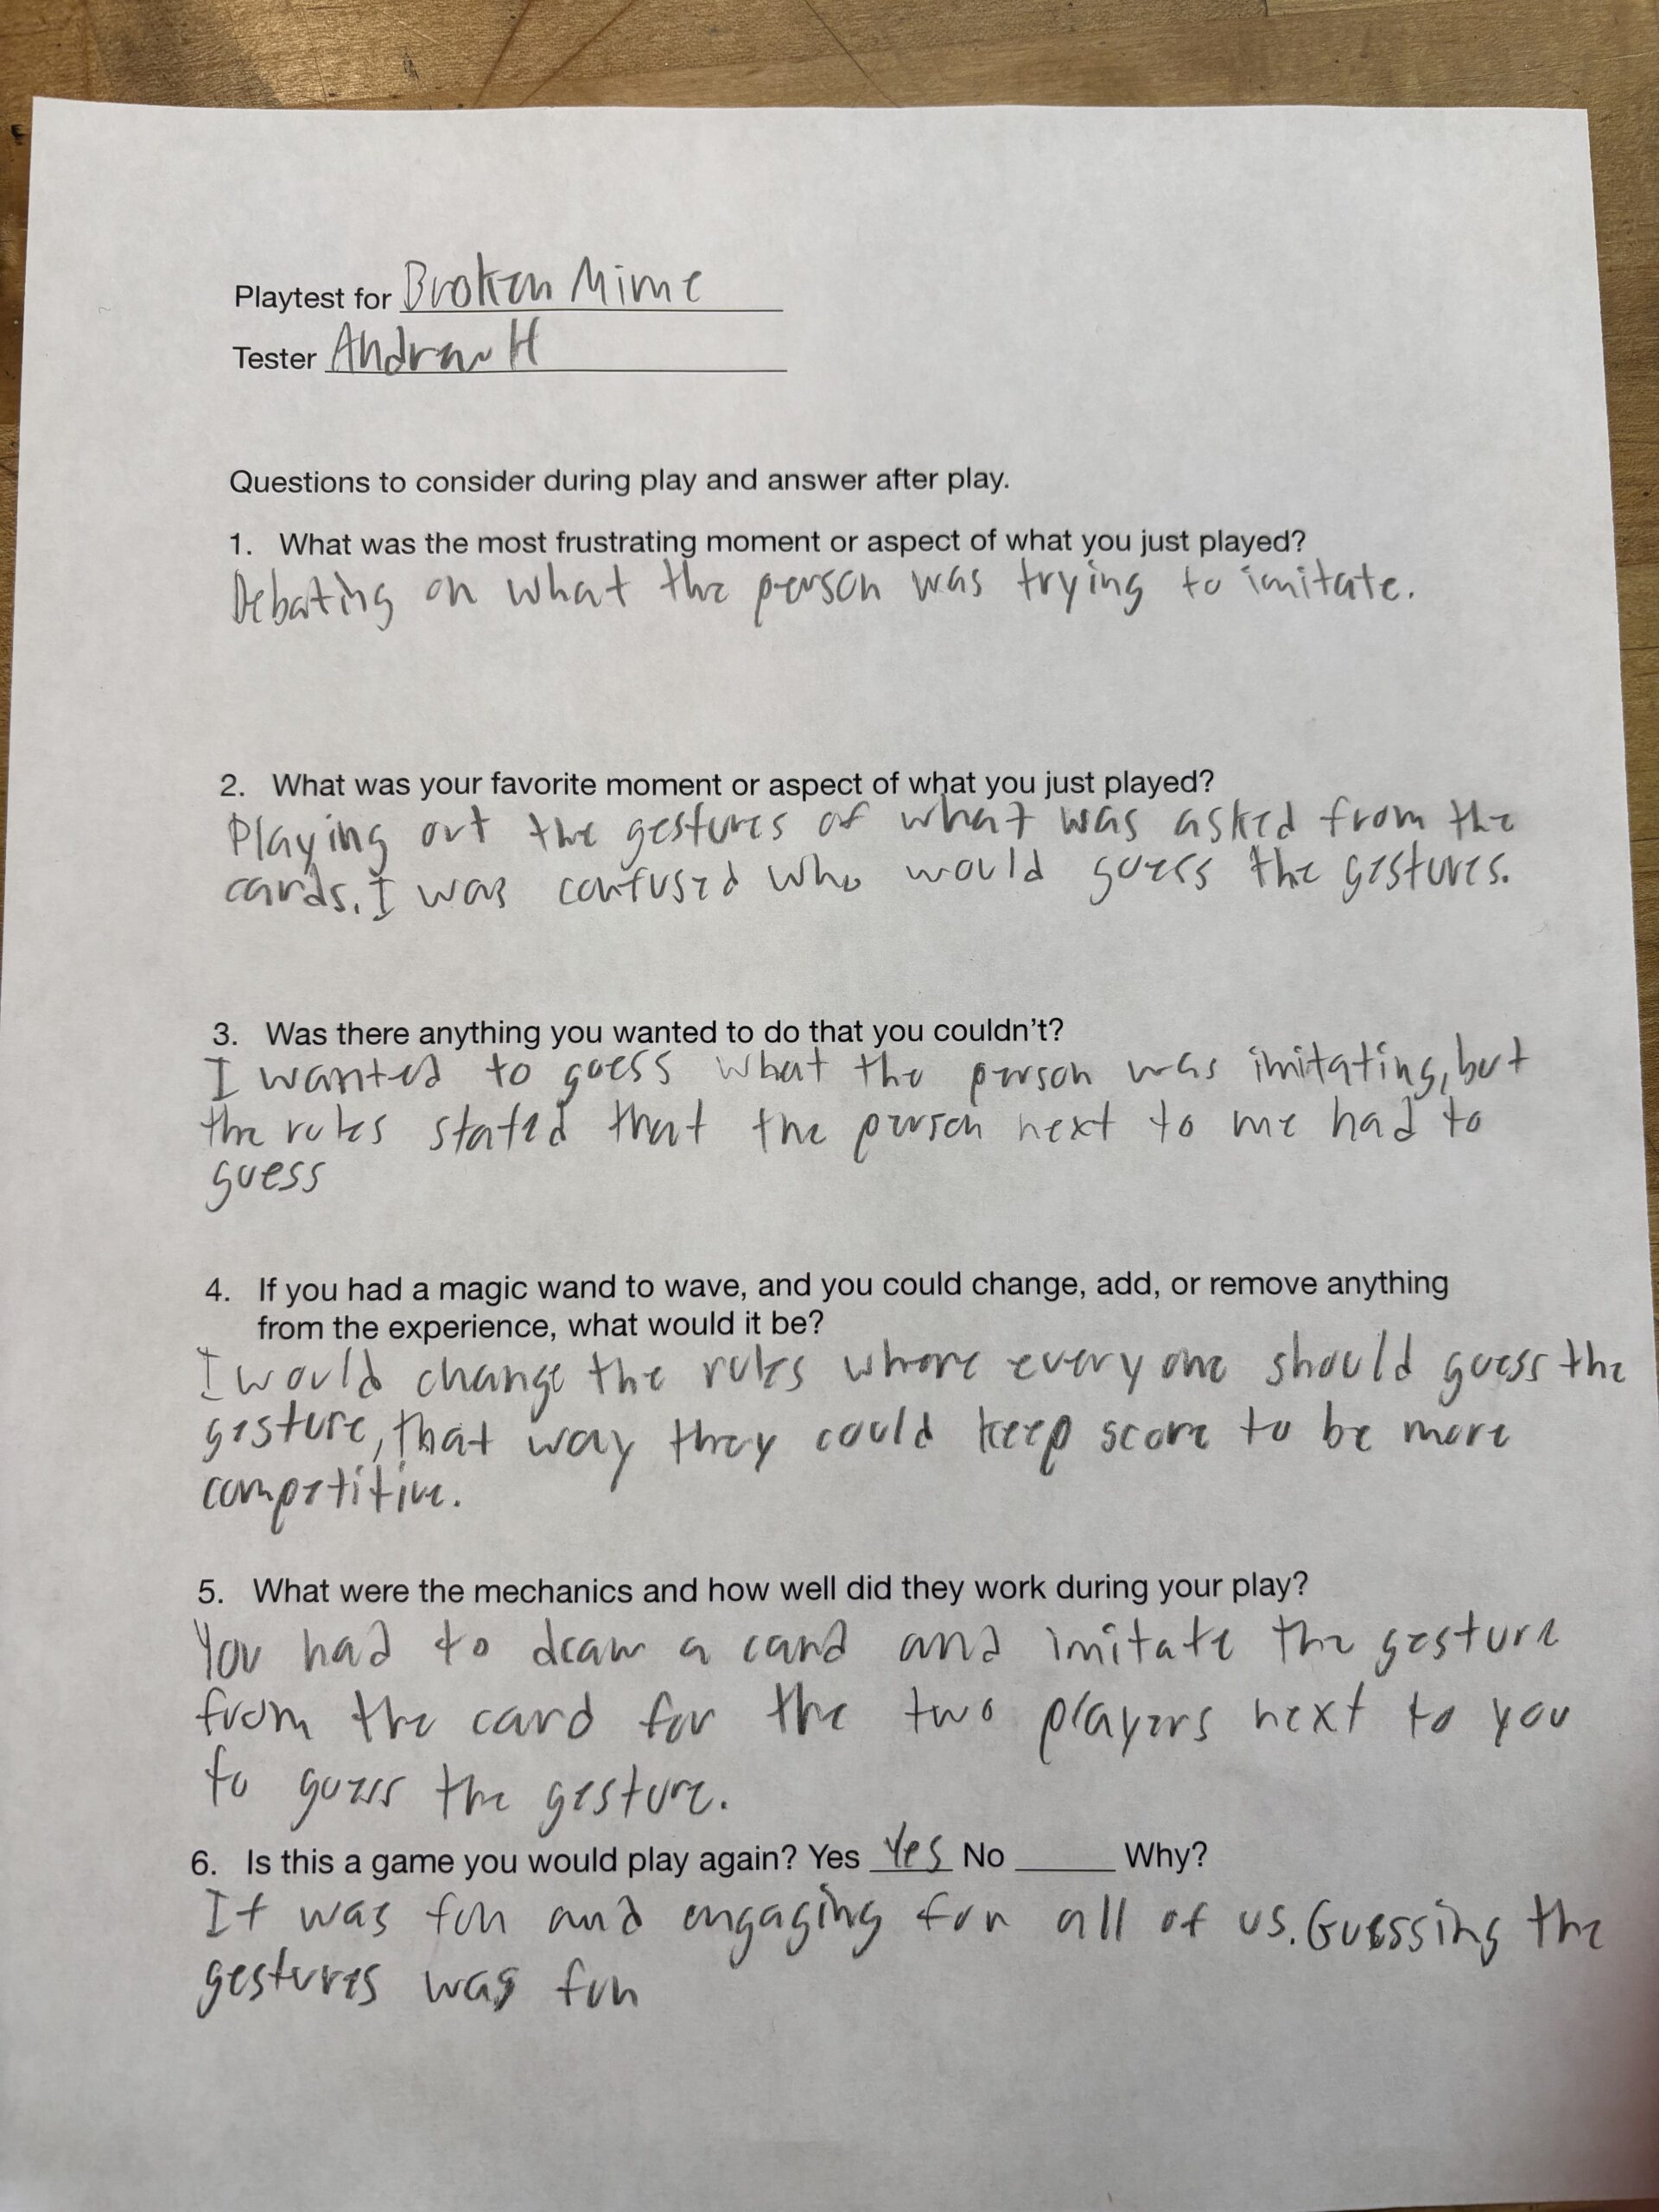 Playtest for Broken Mime
Tester Andrew H
Questions to consider during play and answer after play.
1. What was the most frustrating moment or aspect of what you just played?
Debating on what the person was trying to imitate.
2. What was your favorite moment or aspect of what you just played?
Playing out the gestures of what was asked from the
cards. I was confused who would guess the gestures.
3. Was there anything you wanted to do that you couldn't?
I wanted to guess what the person was imitating, but
the rules stated that the person next to me had to
guess
4. If you had a magic wand to wave, and you could change, add, or remove anything
from the experience, what would it be?
I would change the rules where everyone should guess the
gesture, that way they could keep score to be more
competitive.
5. What were the mechanics and how well did they work during your play?
You had to draw a card and imitate the gesture
from the card for the two players next to you
to guess the gesture.
6. Is this a game you would play again? Yes Yes No ______ Why?
It was fun and engaging for all of us. Guessing the
gestures was fun